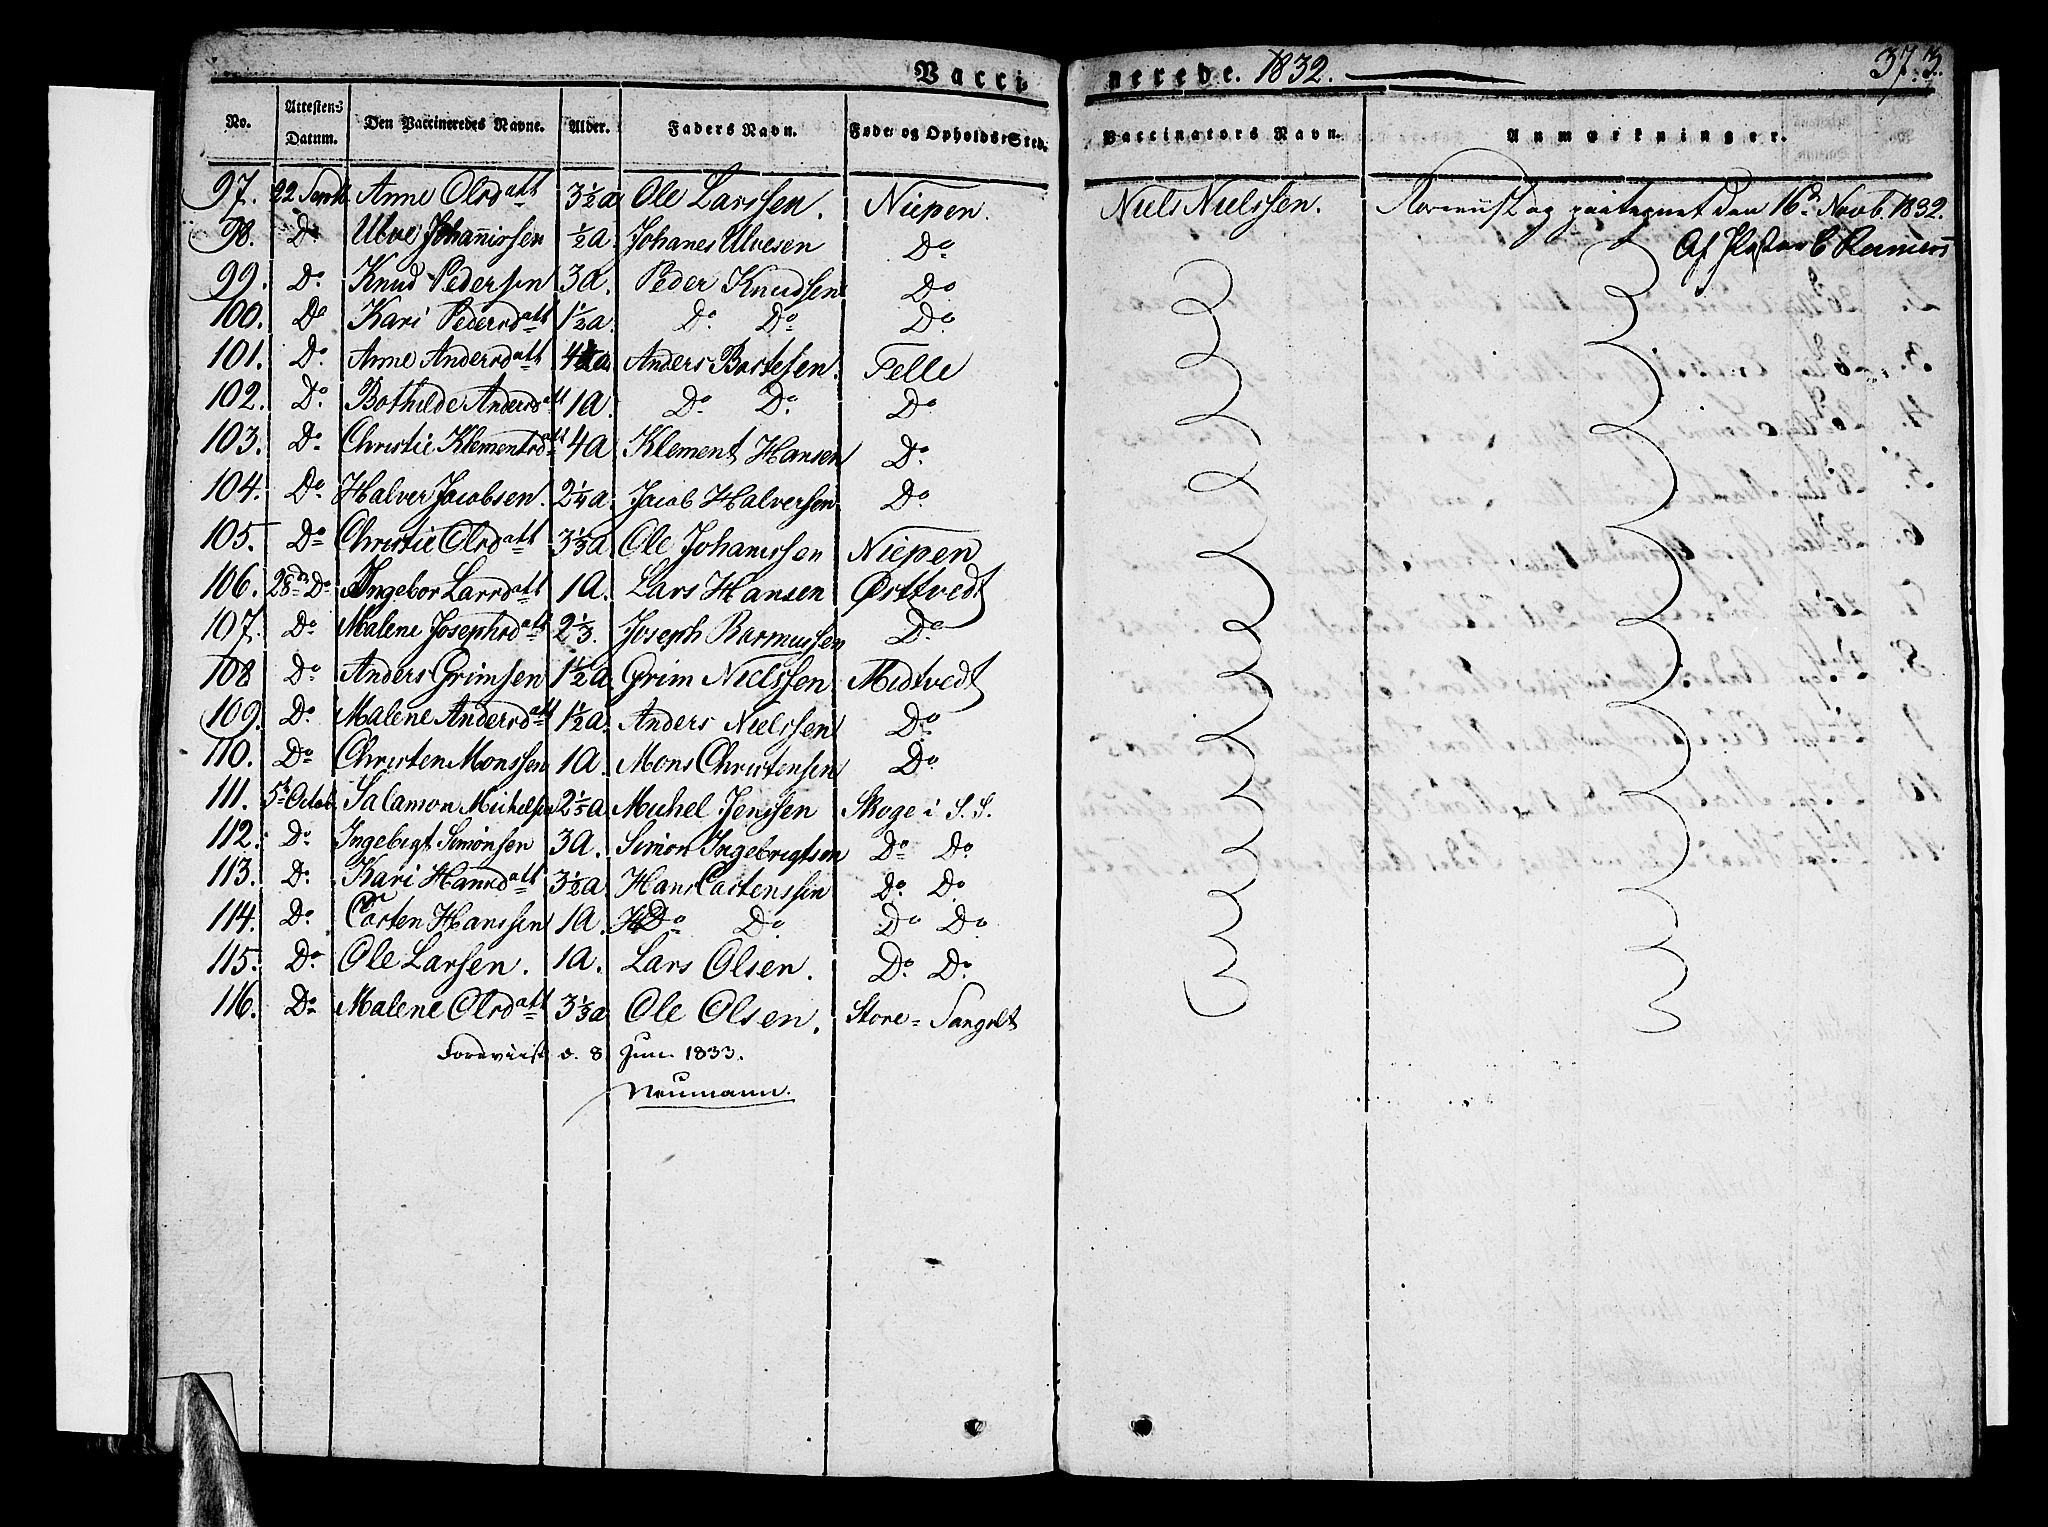 Vaccinerede. 1832. 373.
No. Attestens Datum. Den Vaccineredes Navne. Alder. Faders Navn. Føde- og Opholds-Sted. Vaccinators Navn. Anmærkninger.
97. 22 Septb. Anne Olsdatt 3½a Ole Larssen. Niepen. Niels Nielssen. Foreviist og paategnet den 16d Novb. 1832.
98. Do Ulve Johannissen ½a. Johanes Ulvesen Do Af
99. Do Knud Pedersen 3a. Peder Knudsen Do
100. Do Kari Pedersdatt 1½a Do Do Do
101. Do Anne Andersdatt 4 a Anders Bartesen. Telle
102. Do Bothilde Andersdatt 1a Do Do Do
103. Do Christie Klementsdatt 4a Klement Hansen Do
104. Do Halver Jacobsen. 2¼a. Jacob Halversen Do
105. Do Christie Olsdatt 3⅓a Ole Johanessen Niepen
106. 28de Do Ingebor Larsdatt 1a. Lars Hansen Østtvedt
107. Do Malene Josephsdatt 2⅓. Joseph Rasmussen Do
108 Do Anders Grimsen 1½a. Grim Nielssen Midtvedt
109. Do Malene Andersdatt 1½a. Anders Nielssen Do
110. Do Christen Monssen 1a. Mons Christensen Do
111. 5t Octob. Salamon Michelsen 2⅓a Michel Jenssen Skoge i S. S.
112. Do Ingebrigt Simonsen 3a. Simon Ingebrigtsen Do Do
113. Do Kari Hansdatt 3½a. Hans Castenssen Do Do
114. Do Casten Hanssen 1a. Do Do Do Do
115. Do Ole Larsen. 1a. Lars Olsen. Do Do
116. Do Malene Olsdatt 3⅓a Ole Olsen. Store-Sangolt
Foreviist d. 8 Jun. 1833.
Neumann.